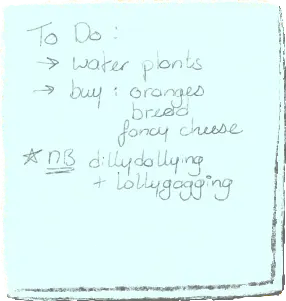 To Do :
→ water plants
→ buy : oranges
bread
fancy cheese
★ NB dillydallying
+ lollygagging